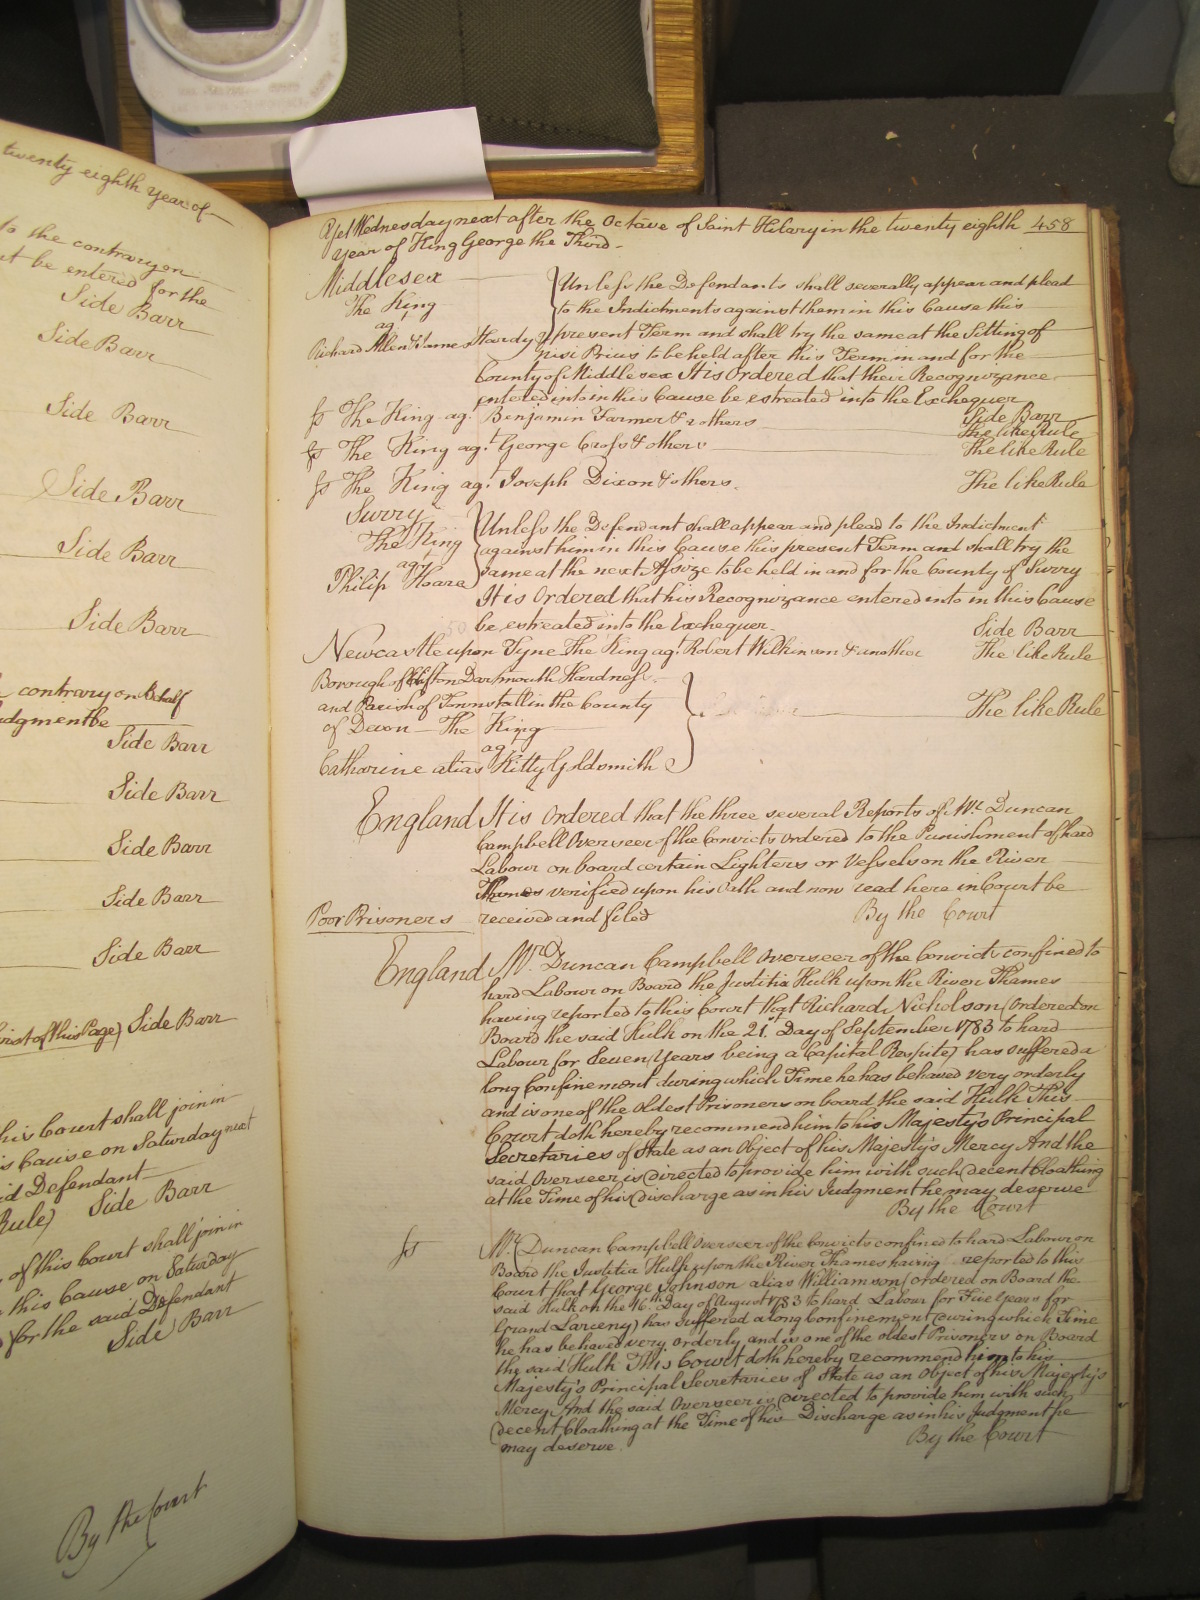 twenty eighth year of
to the contrary on
be entered for the
Side Barr
Side Barr
Side Barr
Side Barr
Side Barr
Side Barr
contrary on Behalf
Judgment be
Side Barr
Side Barr
Side Barr
Side Barr
Side Barr
first of this Page) Side Barr
his Court shall join in
Cause on Saturday next
Defendant
Rule) Side Barr
of this Court shall join in
this Cause on Saturday
for the said Defendant
Side Barr
By the Court
Yet Wednesday next after the Octave of Saint Hilary in the twenty eighth 458
year of King George the Third
Middlesex
The King
agt
Richard Allen & James Hardy
Unless the Defendants shall severally appear and plead
to the Indictments against them in this Cause this
present Term and shall try the same at the Sitting of
Nisi Prius to be held after this Term in and for the
County of Middlesex It is Ordered that their Recognizance
entered into in this Cause be estreated into the Exchequer
Side Barr
ss The King agt Benjamin Farmer & others The like Rule
ss The King agt George Cross & others The like Rule
ss The King agt Joseph Dixon & others The like Rule
Surry
The King
agt
Philip Hoare
Unless the Defendant shall appear and plead to the Indictment
against him in this Cause this present Term and shall try the
same at the next Assize to be held in and for the County of Surry
It is Ordered that his Recognizance entered into in this Cause
be estreated into the Exchequer Side Barr
Newcastle upon Tyne The King agt Robert Wilkinson & another The like Rule
Borough of Clifton Dartmouth Hardness
and Parish of Townstall in the County
of Devon The King
agt
Catharine alias Kitty Goldsmith
The like Rule
England It is Ordered that the three several Reports of Mr. Duncan
Campbell Overseer of the Convicts ordered to the Punishment of hard
Labour on board certain Lighters or Vessels on the River
Thames verified upon his Oath and now read here in Court be
received and filed By the Court
Poor Prisoners
England Mr. Duncan Campbell Overseer of the Convicts confined to
hard Labour on Board the Justitia Hulk upon the River Thames
having reported to this Court that Richard Nicholson (Ordered on
Board the said Hulk on the 21st Day of September 1783 to hard
Labour for Seven Years being a Capital Respite) has suffered a
long Confinement during which Time he has behaved very orderly
and is one of the oldest Prisoners on board the said Hulk This
Court doth hereby recommend him to his Majesty's Principal
Secretaries of State as an Object of his Majesty's Mercy And the
said Overseer is directed to provide him with such decent Cloathing
at the Time of his Discharge as in his Judgment he may deserve
By the Court
ss Mr. Duncan Campbell Overseer of the Convicts confined to hard Labour on
Board the Justitia Hulk upon the River Thames having reported to this
Court that George Johnson alias Williamson (ordered on Board the
said Hulk on the 16th Day of August 1783 to hard Labour for Five Years for
Grand Larceny) has suffered a long Confinement during which Time
he has behaved very orderly and is one of the oldest Prisoners on Board
the said Hulk This Court doth hereby recommend him to his
Majesty's Principal Secretaries of State as an Object of his Majesty's
Mercy And the said Overseer is directed to provide him with such
decent Cloathing at the Time of his Discharge as in his Judgment he
may deserve By the Court